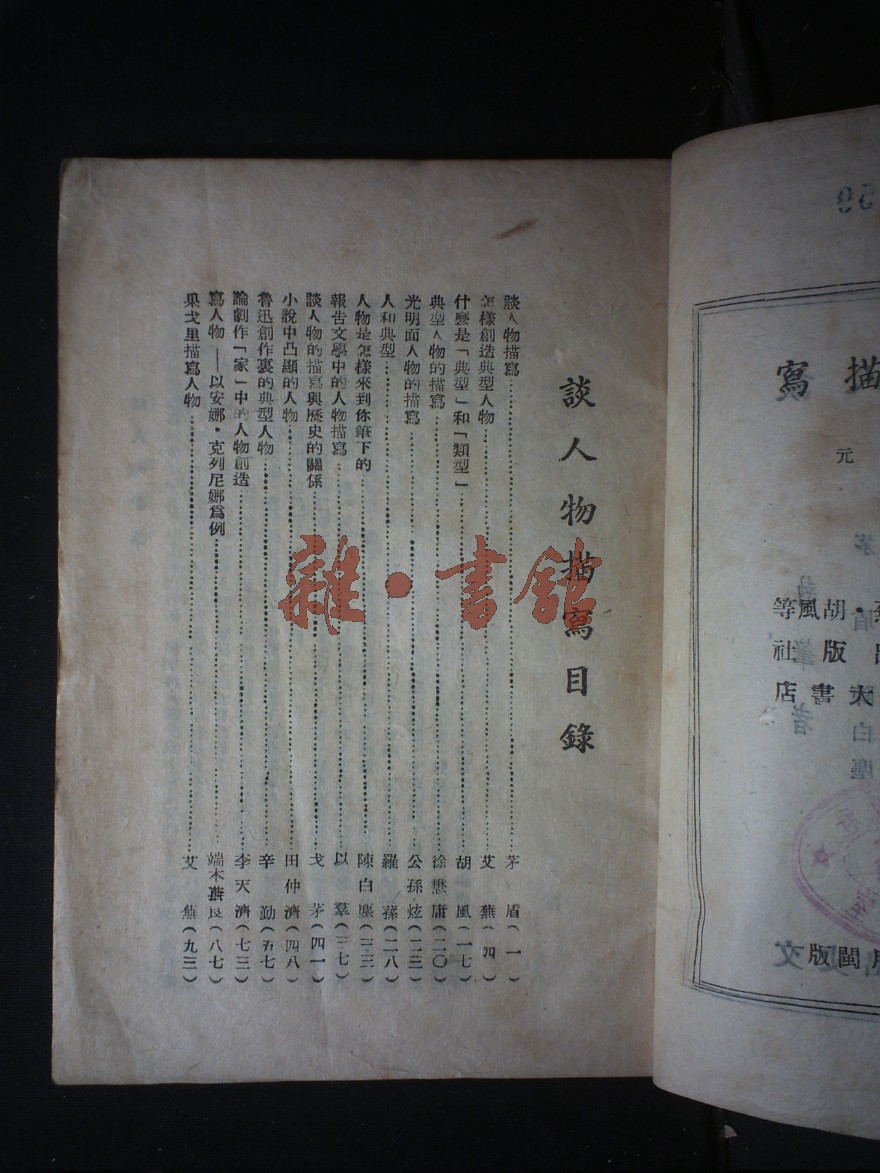 談人物描寫目錄
談人物描寫……茅盾(一)
怎樣創造典型人物……艾蕪(四)
什麼是「典型」和「類型」……胡風(一七)
典型人物的描寫……徐懋庸(二〇)
光明面人物的描寫……公孫炫(二三)
人和典型……羅蓀(二八)
人物是怎樣來到你筆下的……陳白塵(三三)
報告文學中的人物描寫……以羣(三七)
談人物的描寫與歷史的關係……戈茅(四一)
小說中凸顯的人物……田仲濟(四八)
魯迅創作裏的典型人物……辛勤(五七)
論劇作「家」中的人物創造……李天濟(七三)
寫人物——以安娜·克列尼娜爲例……端木蕻良(八七)
果戈里描寫人物……艾蕪(九三)
雜·書館
描寫
元
胡風等
版社
大書店
閩版